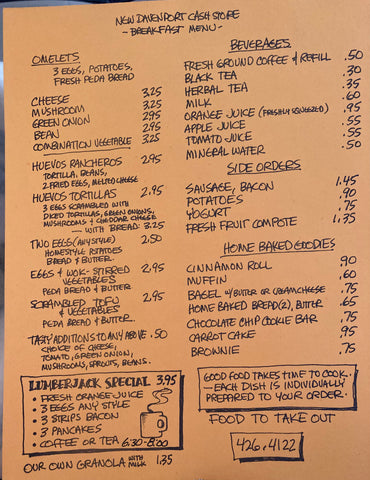 NEW DAVENPORT CASH STORE
- BREAKFAST MENU -
OMELETS
3 EGGS, POTATOES,
FRESH PEDA BREAD
CHEESE 3.25
MUSHROOM 3.25
GREEN ONION 2.95
BEAN 2.95
COMBINATION VEGETABLE 3.25
HUEVOS RANCHEROS 2.95
TORTILLA, BEANS,
2 FRIED EGGS, MELTED CHEESE
HUEVOS TORTILLAS 2.95
3 EGGS SCRAMBLED WITH
DICED TORTILLAS, GREEN ONIONS,
MUSHROOMS & CHEDDAR CHEESE
— WITH BREAD: 3.25
TWO EGGS (ANY STYLE) 2.50
HOMESTYLE POTATOES
BREAD & BUTTER
EGGS & WOK-STIRRED 2.95
VEGETABLES
PEDA BREAD & BUTTER
SCRAMBLED TOFU 2.95
& VEGETABLES
PEDA BREAD & BUTTER
TASTY ADDITIONS TO ANY ABOVE .50
CHOICE OF CHEESE,
TOMATO, GREEN ONION,
MUSHROOMS, SPROUTS, BEANS.
LUMBERJACK SPECIAL 3.95
• FRESH ORANGE JUICE
• 3 EGGS ANY STYLE
• 3 STRIPS BACON
• 3 PANCAKES
• COFFEE OR TEA 6:30-8:00
OUR OWN GRANOLA WITH MILK 1.35
BEVERAGES
FRESH GROUND COFFEE & REFILL .50
BLACK TEA .30
HERBAL TEA .35
MILK .60
ORANGE JUICE (FRESHLY SQUEEZED) .95
APPLE JUICE .55
TOMATO JUICE .55
MINERAL WATER .50
SIDE ORDERS
SAUSAGE, BACON 1.45
POTATOES .90
YOGURT .75
FRESH FRUIT COMPOTE 1.35
HOME BAKED GOODIES
CINNAMON ROLL .90
MUFFIN .60
BAGEL W/BUTTER OR CREAM CHEESE .75
HOME BAKED BREAD (2), BUTTER .65
CHOCOLATE CHIP COOKIE BAR .75
CARROT CAKE .95
BROWNIE .75
GOOD FOOD TAKES TIME TO COOK.
— EACH DISH IS INDIVIDUALLY
PREPARED TO YOUR ORDER.
FOOD TO TAKE OUT
426.4122